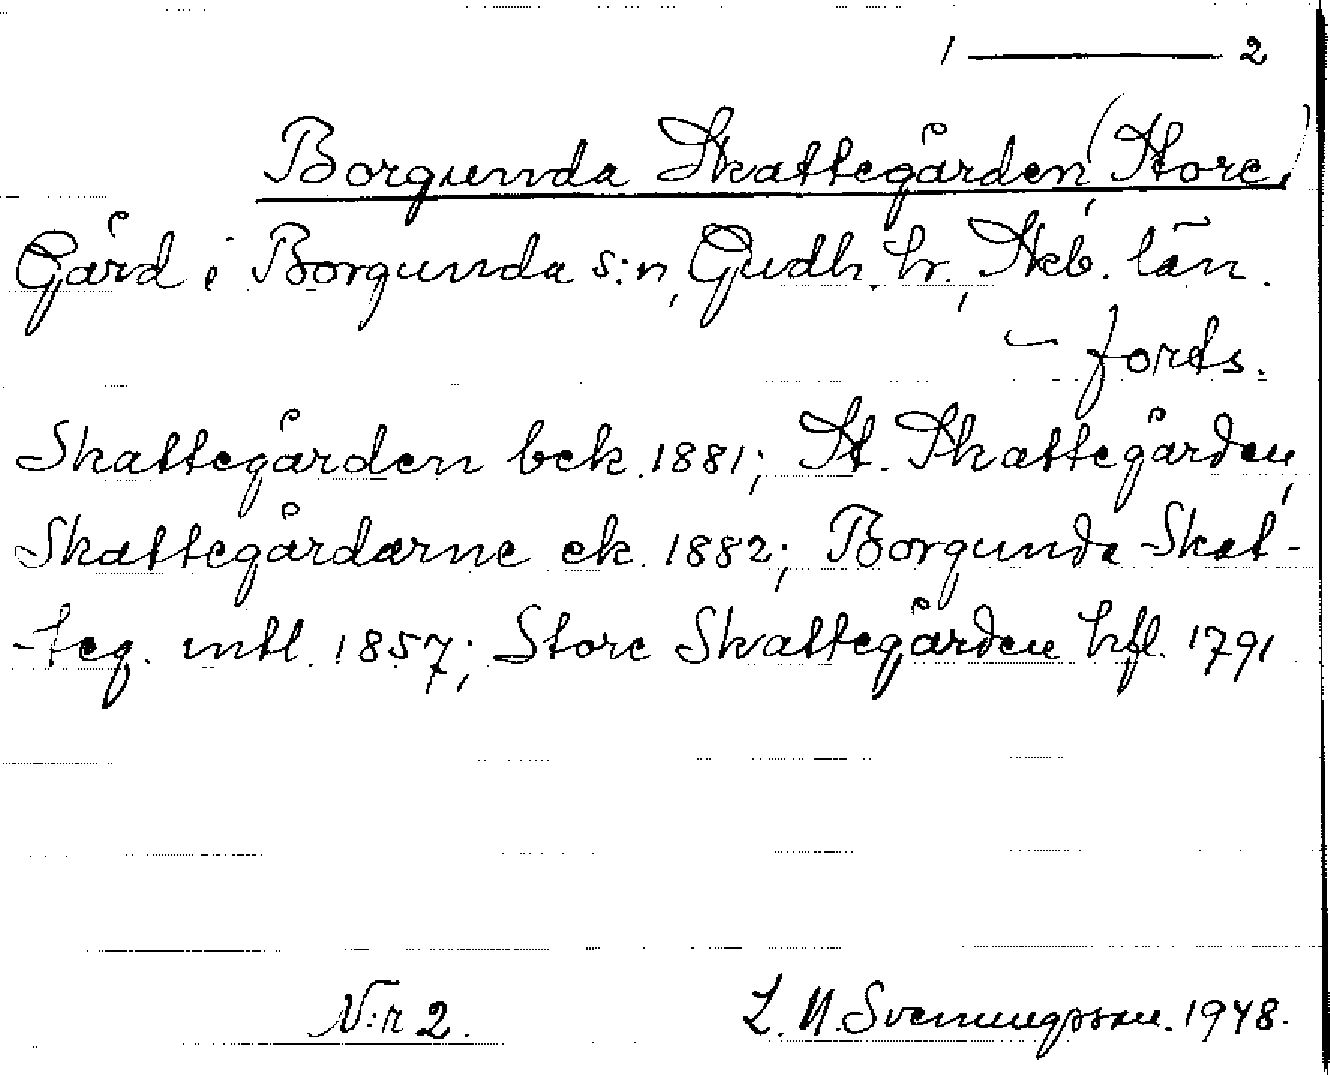 1 ——— 2
Borgunda Skattegården, (Store)
Gård i Borgunda s:n, Gudh. hr., Skb. län.
– forts.
Skattegården bek. 1881; St. Skattegården,
Skattegårdarne ek. 1882; Borgunda Skat-
-teg. mtl. 1857; Store Skattegården hfl. 1791
N:r 2. L. N. Svenungsson. 1948.